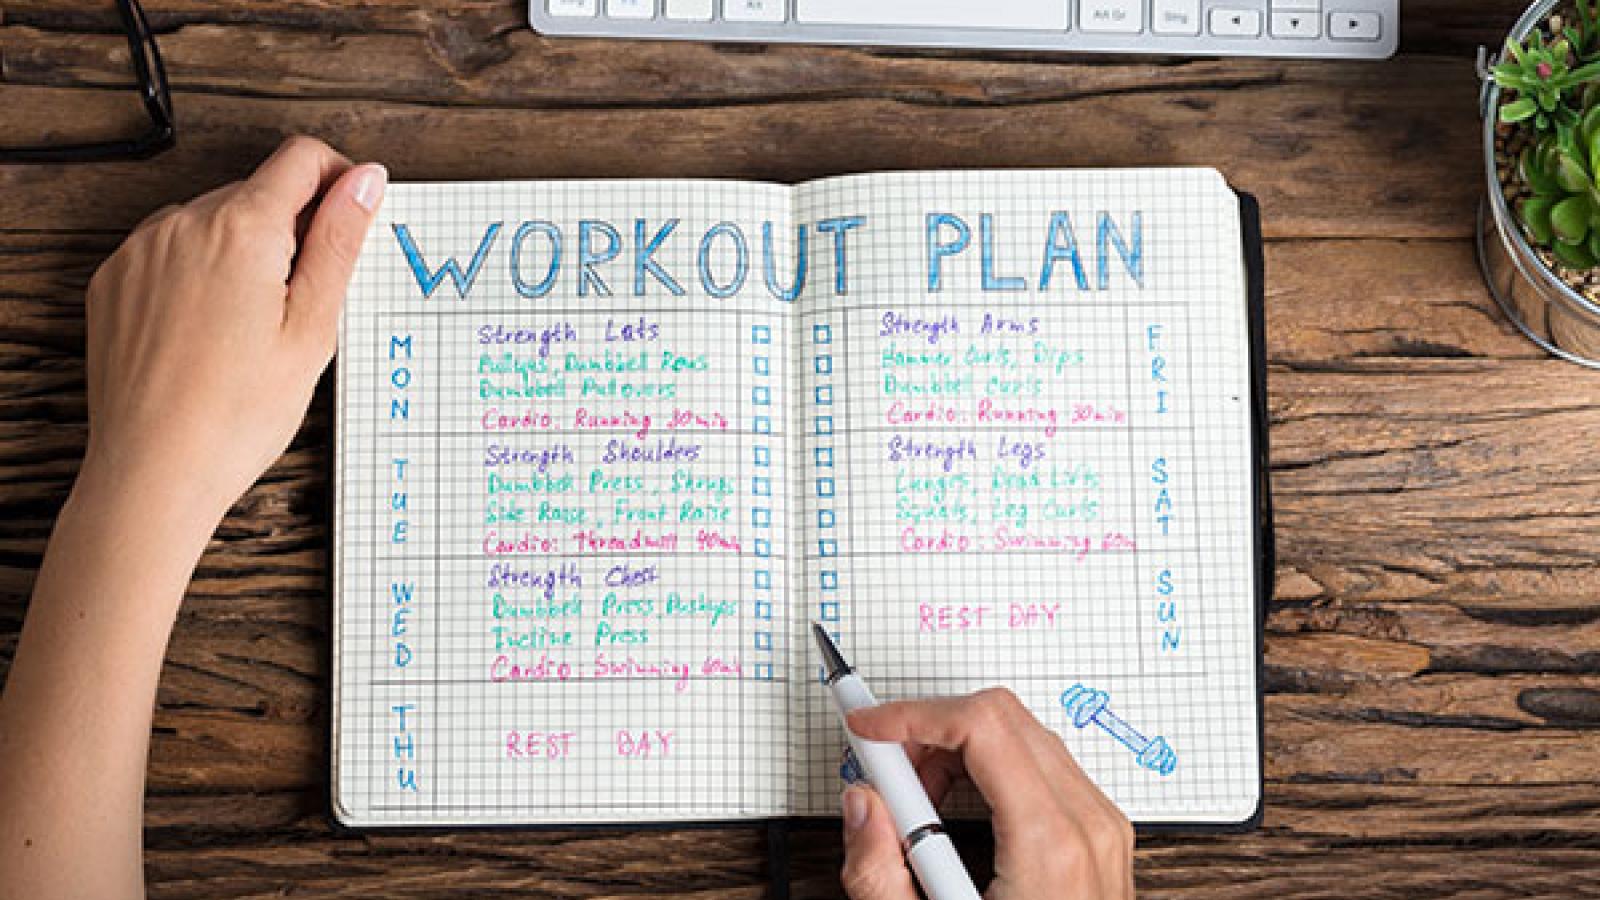 WORKOUT PLAN
MON
Strength Lats
Pullups, Dumbbell Rows
Dumbbell Pullovers
Cardio: Running 30min
TUE
Strength Shoulders
Dumbbell Press, Shrugs
Side Raise, Front Raise
Cardio: Threadmill 40min
WED
Strength Chest
Dumbbell Press, Pushups
Incline Press
Cardio: Swimming 60min
THU
REST DAY
Strength Arms
FRI
Hammer Curls, Dips
Dumbbell Curls
Cardio: Running 30min
Strength Legs
SAT
Lunges, Dead Lifts
Squats, Leg Curls
Cardio: Swimming 60m
SUN
REST DAY
Alt Gr